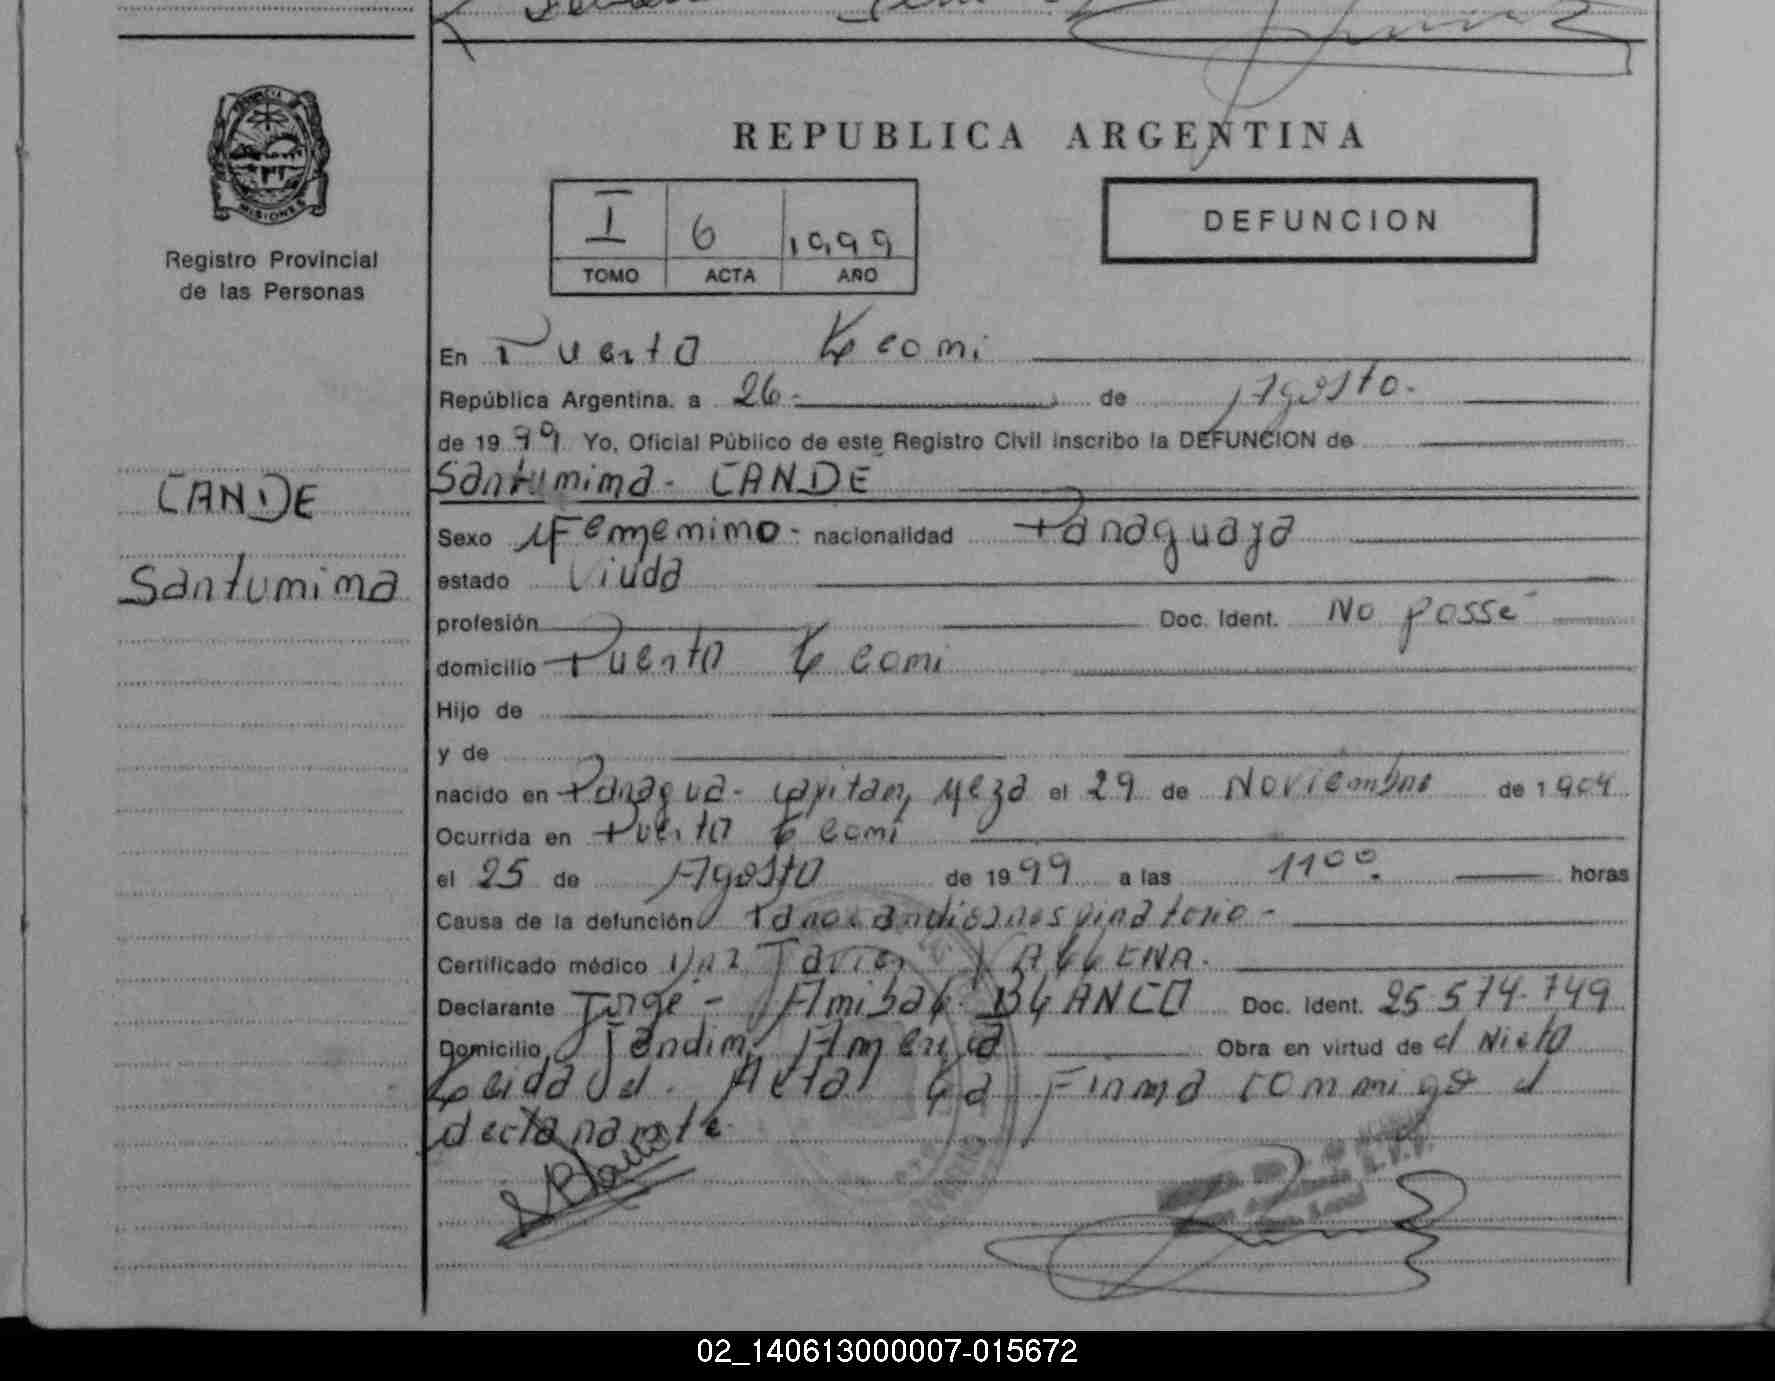 PROVINCIA DE
MISIONES
Registro Provincial
de las Personas
CANDE
Santumima
REPUBLICA ARGENTINA
I 6 1999
TOMO ACTA AÑO
DEFUNCION
En Puerto Leoni
República Argentina, a 26 - de Agosto.
de 1999 Yo, Oficial Público de este Registro Civil inscribo la DEFUNCION de
Santumima - CANDE
Sexo Femenino - nacionalidad Paraguaya
estado Viuda
profesión Doc. Ident. No posse
domicilio Puerto Leoni
Hijo de
y de
nacido en Paragua - Capitan Meza el 29 de Noviembre de 1904
Ocurrida en Puerto Leoni
el 25 de Agosto de 1999 a las 11 00 horas
Causa de la defunción Paro cardiorrespiratorio -
Certificado médico
Declarante Jorge - Anibal BLANCO Doc. Ident. 25.574.749
Domicilio Jardin America Obra en virtud de el Nieto
Leida el Acta La Firma conmigo el
declarante
Blanco
02_140613000007-015672